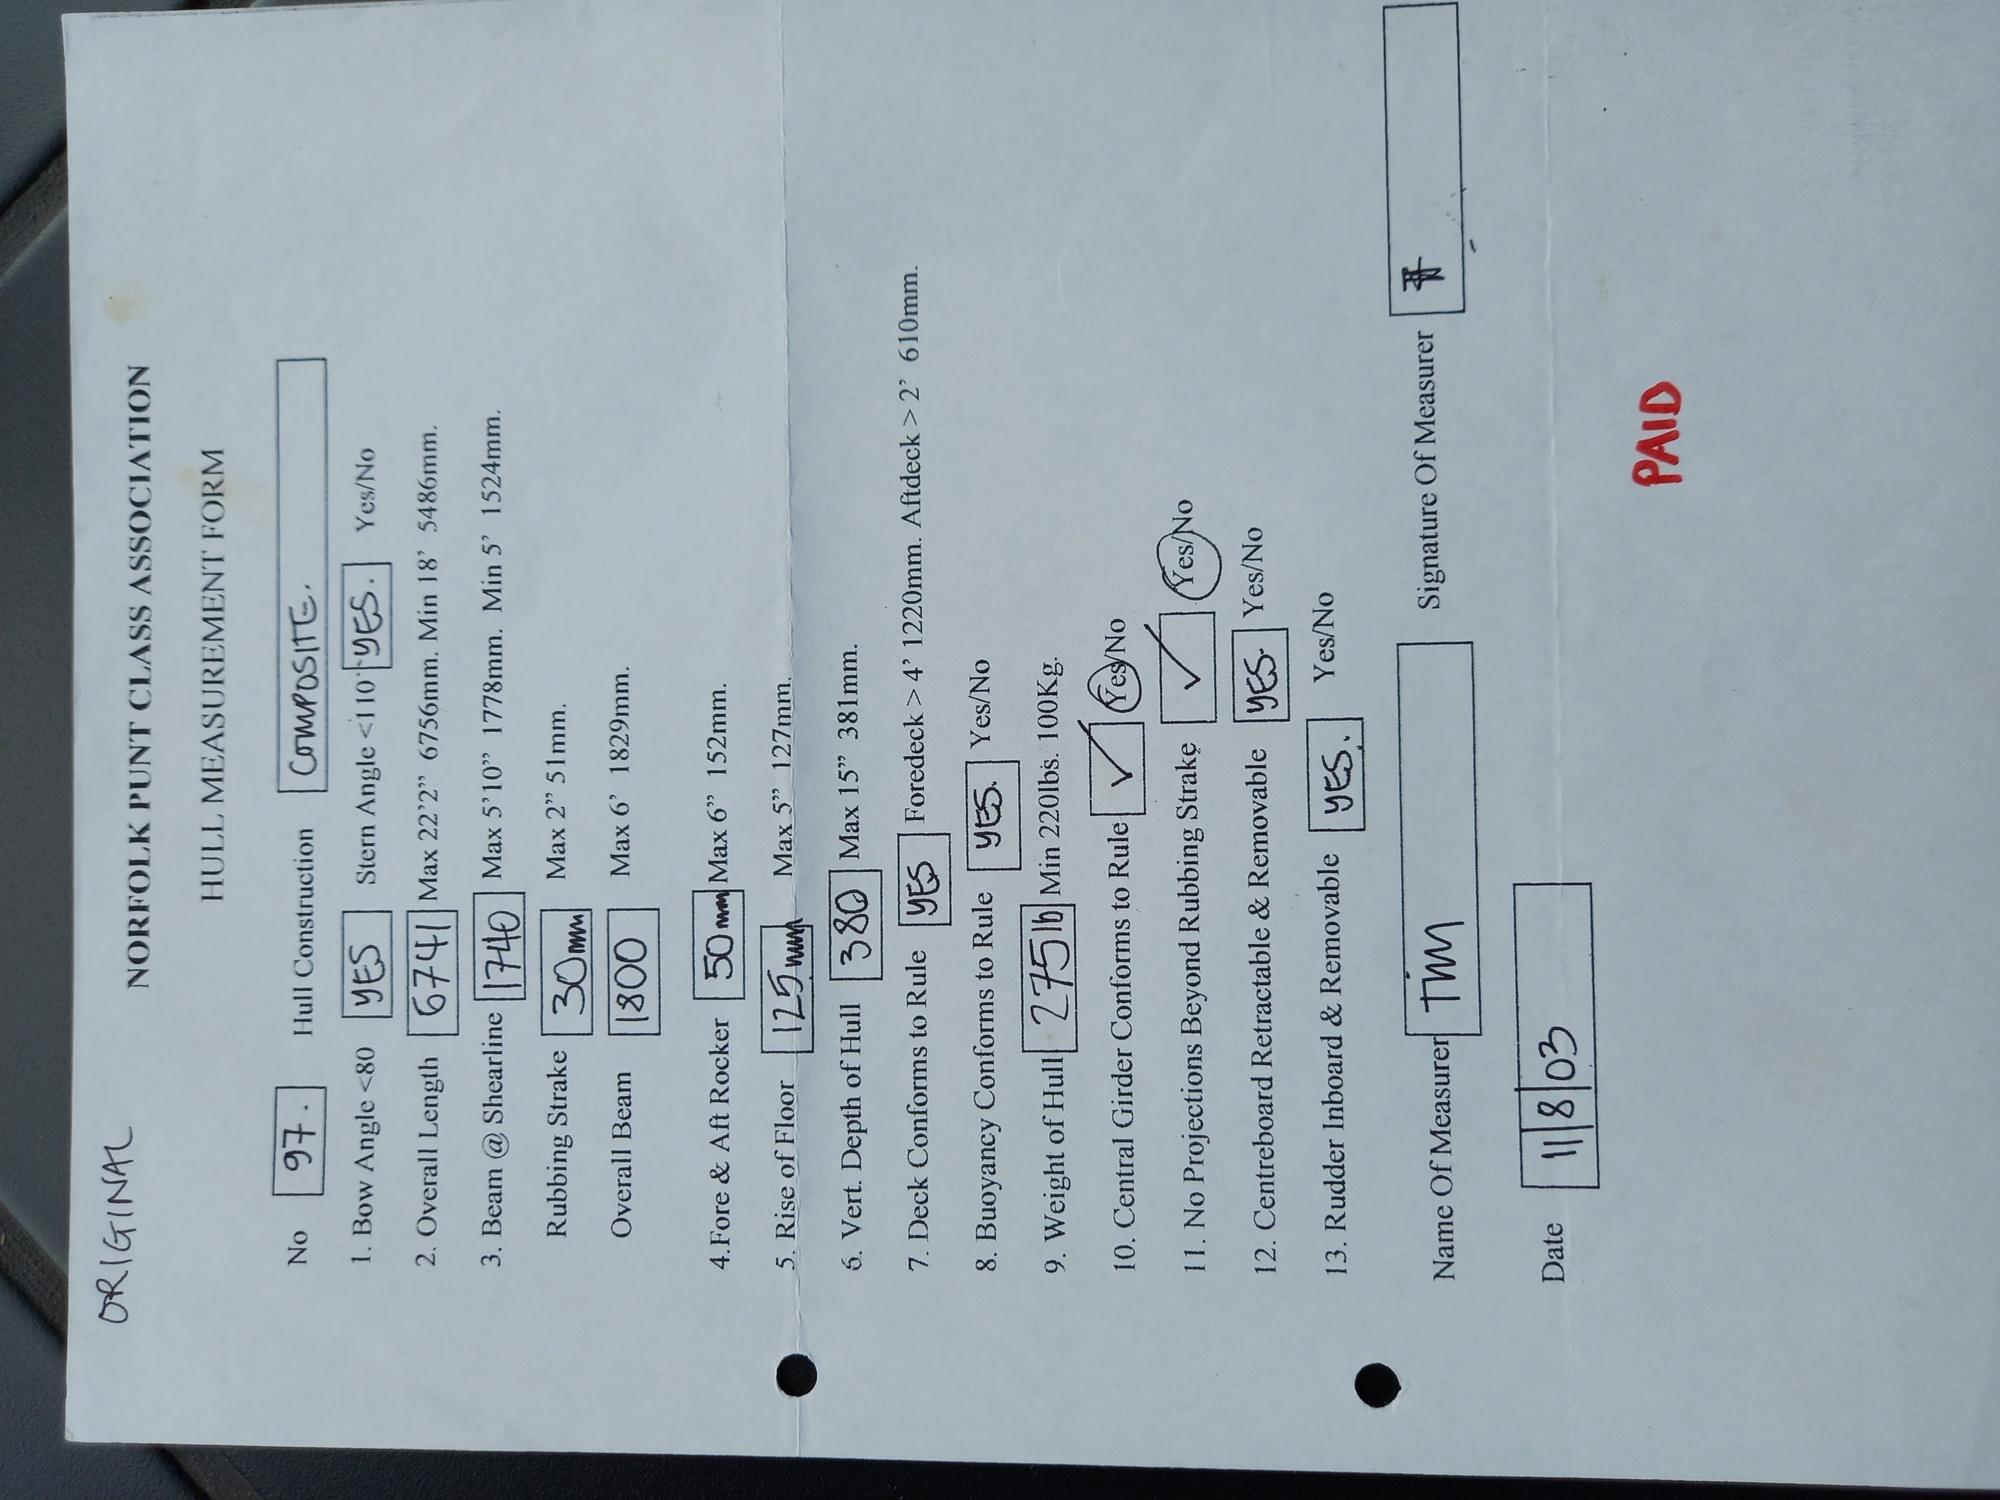 ORIGINAL
NORFOLK PUNT CLASS ASSOCIATION
HULL MEASUREMENT FORM
No 97. Hull Construction COMPOSITE.
1. Bow Angle <80 YES Stern Angle <110 YES. Yes/No
2. Overall Length 6741 Max 22’2” 6756mm. Min 18’ 5486mm.
3. Beam @ Shearline 1740 Max 5’10” 1778mm. Min 5’ 1524mm.
Rubbing Strake 30mm Max 2” 51mm.
Overall Beam 1800 Max 6’ 1829mm.
4.Fore & Aft Rocker 50mm Max 6” 152mm.
5. Rise of Floor 125mm Max 5” 127mm.
6. Vert. Depth of Hull 380 Max 15” 381mm.
7. Deck Conforms to Rule YES Foredeck > 4’ 1220mm. Aftdeck > 2’ 610mm.
8. Buoyancy Conforms to Rule YES. Yes/No
9. Weight of Hull 275lb Min 220lbs. 100Kg.
10. Central Girder Conforms to Rule ✓ Yes/No
11. No Projections Beyond Rubbing Strake ✓ Yes/No
12. Centreboard Retractable & Removable YES. Yes/No
13. Rudder Inboard & Removable YES. Yes/No
Name Of Measurer Tim Signature Of Measurer
Date 11|8|03
PAID